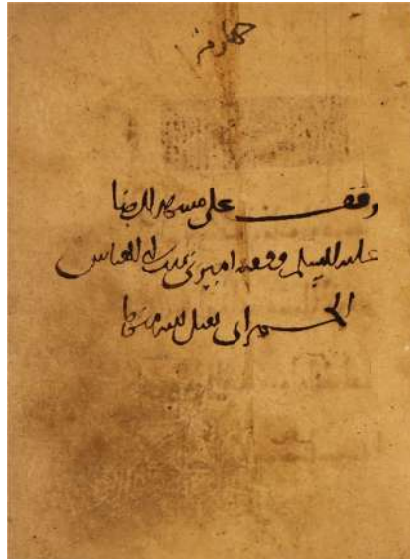 چهارم
وقف على مشهد الرضا
عليه السلم وقفه امیری بنت ابی العباس
تقبل الله منها